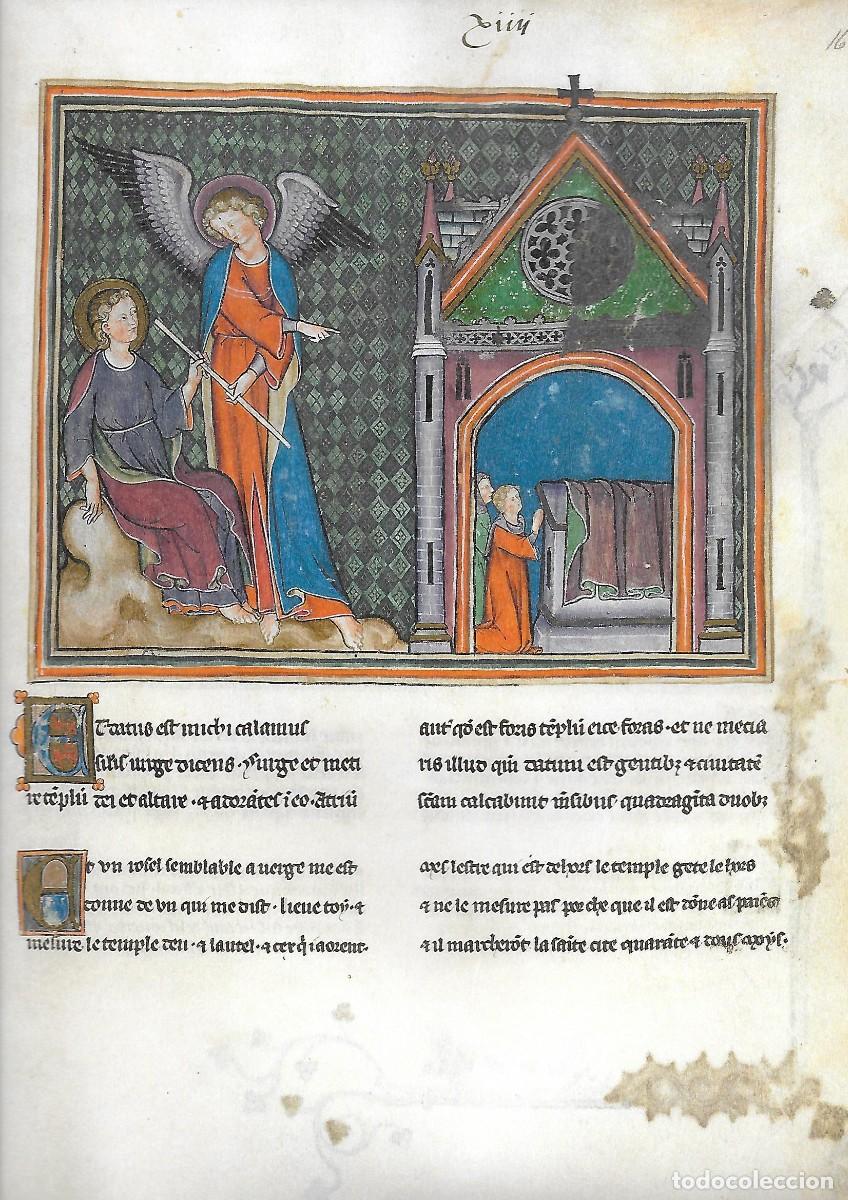 xiiij
16
Et datus est michi calamus
silis uirge dicens · Surge et meti
re te͞plu͞ dei et altare · ⁊ adora͞tes i͞ eo · Atriu͞
aut͞ qd͞ est foras te͞plu͞ eice foras · et ne metia
ris illud qm͞ datum est gentibꝫ ⁊ ciuitate͞
sc͞am calcabunt m͞sibus quadragi͞ta duobꝫ
Et vn rosel semblable a uerge me est
donne de vn qui me dist · lieue toy · ⁊
mesure le temple deu · ⁊ lautel · ⁊ ceꝛ qͥ i aorent ·
Mes lestre qui est dehors le temple gete le hors
⁊ ne le mesure pas por che que il est do͞ne as paie͞s
⁊ il marchero͞t la sai͞te cite quara͞te ⁊ dous moys ·
todocoleccion